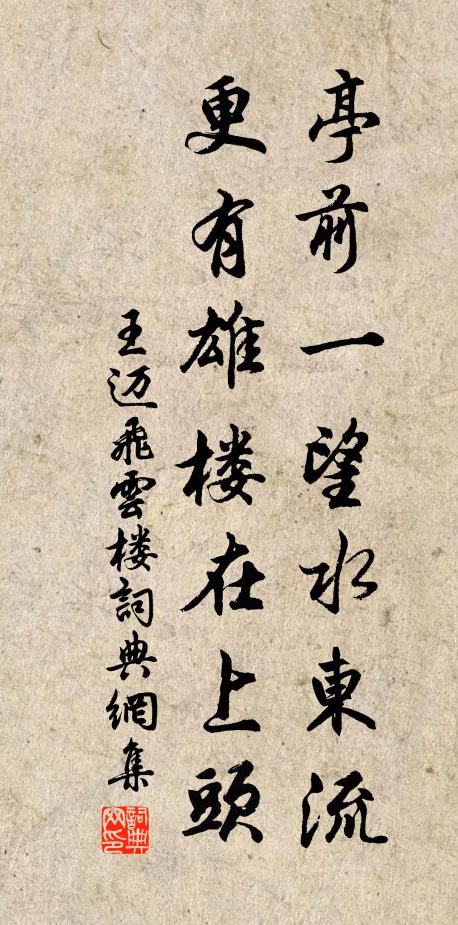 亭前一望水東流
更有雄楼在上頭
王迈飛雲楼詞典網集
詞典网印